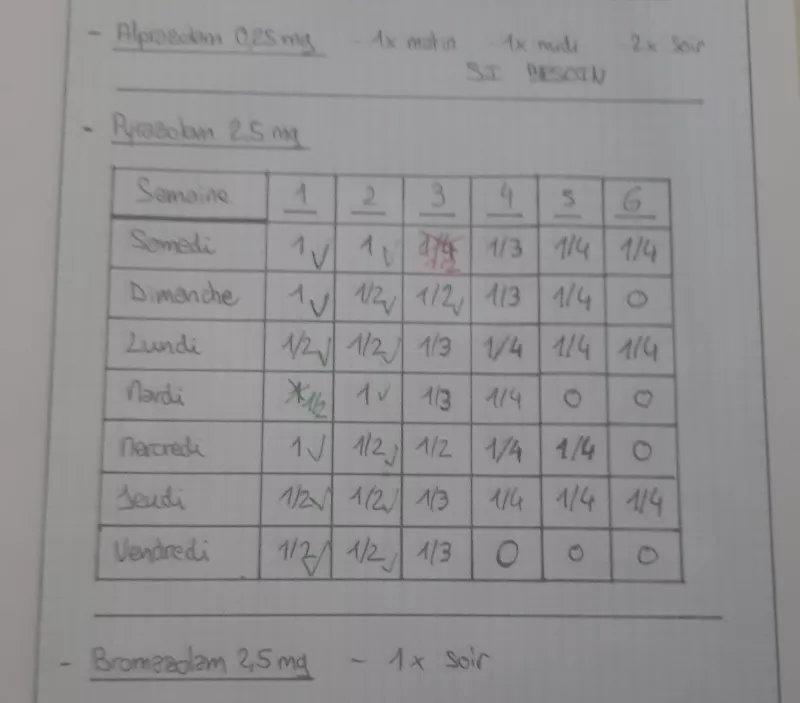 - Alprazolam 0,25 mg - 1x matin - 1x midi - 2x soir
SI BESOIN
- Pyrazolam 2.5 mg
Semaine 1 2 3 4 5 6
Samedi 1 ✓ 1 ✓ 1/2 1/3 1/4 1/4
Dimanche 1 ✓ 1/2 ✓ 1/2 ✓ 1/3 1/4 0
Lundi 1/2 ✓ 1/2 ✓ 1/3 1/4 1/4 1/4
Mardi 1/2 1 ✓ 1/3 1/4 0 0
Mercredi 1 ✓ 1/2 ✓ 1/2 1/4 1/4 0
Jeudi 1/2 ✓ 1/2 ✓ 1/3 1/4 1/4 1/4
Vendredi 1/2 ✓ 1/2 ✓ 1/3 0 0 0
- Bromazolam 2,5 mg - 1x soir